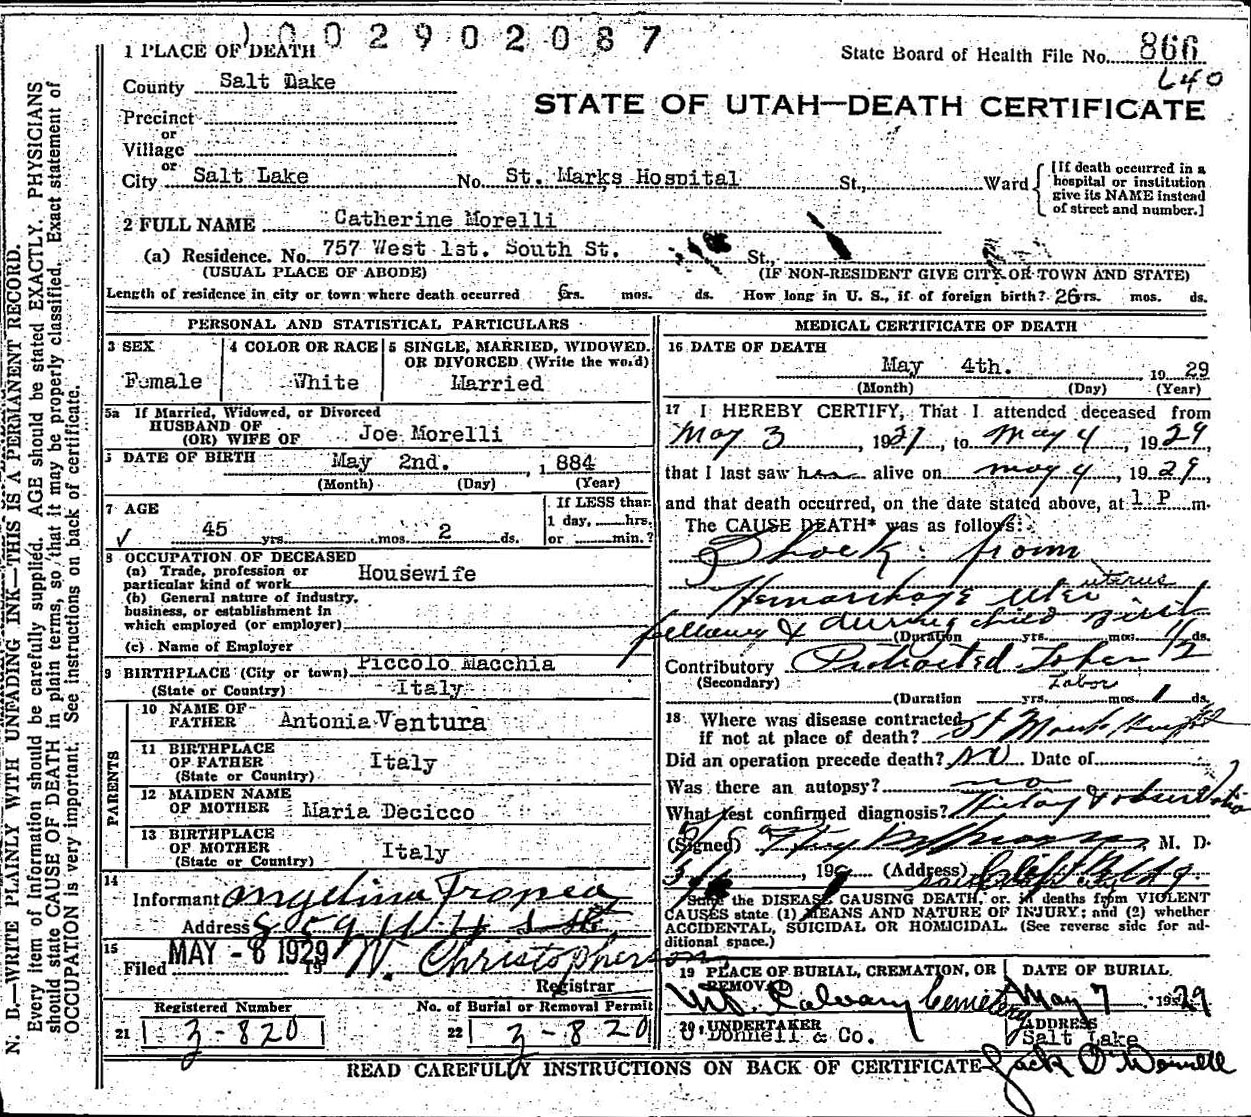 1002902087
1 PLACE OF DEATH
State Board of Health File No. 866
640
County Salt Lake
STATE OF UTAH—DEATH CERTIFICATE
Precinct
or
Village
or
City Salt Lake No. St. Marks Hospital St., Ward
[If death occurred in a hospital or institution give its NAME instead of street and number.]
2 FULL NAME Catherine Morelli
(a) Residence. No. 757 West 1st. South St. St.,
(USUAL PLACE OF ABODE) (IF NON-RESIDENT GIVE CITY OR TOWN AND STATE)
Length of residence in city or town where death occurred 6rs. mos. ds. How long in U. S., if of foreign birth? 26rs. mos. ds.
PERSONAL AND STATISTICAL PARTICULARS
3 SEX
Female
4 COLOR OR RACE
White
5 SINGLE, MARRIED, WIDOWED.
OR DIVORCED (Write the word)
Married
5a If Married, Widowed, or Divorced
HUSBAND OF
(OR) WIFE OF Joe Morelli
DATE OF BIRTH May 2nd. , 1884
(Month) (Day) (Year)
7 AGE
45 yrs. mos. 2 ds.
If LESS than
1 day, hrs.
or min.?
8 OCCUPATION OF DECEASED
(a) Trade, profession or
particular kind of work Housewife
(b) General nature of industry,
business, or establishment in
which employed (or employer)
(c) Name of Employer
9 BIRTHPLACE (City or town) Piccolo Macchia
(State or Country) Italy
PARENTS
10 NAME OF
FATHER Antonia Ventura
11 BIRTHPLACE
OF FATHER Italy
(State or Country)
12 MAIDEN NAME
OF MOTHER Maria Decicco
13 BIRTHPLACE
OF MOTHER Italy
(State or Country)
14
Informant Angelina Tropea
Address
15
Filed MAY - 8 1929 19 W. Christopherson
Registrar
Registered Number
21 3-820
No. of Burial or Removal Permit
22 3-820
MEDICAL CERTIFICATE OF DEATH
16 DATE OF DEATH
May 4th. 19 29
(Month) (Day) (Year)
17 I HEREBY CERTIFY, That I attended deceased from
May 3, 1929, to May 4, 1929
that I last saw her alive on May 4, 1929,
and that death occurred, on the date stated above, at 1 P m.
The CAUSE DEATH* was as follows:
Shock from
uterus
Hemorrhage
following & during child birth
(Duration yrs. mos. 1/2 ds.
Contributory Protracted Labor
(Secondary) Labor
(Duration yrs. mos. 1 ds.
18 Where was disease contracted
if not at place of death? St Marks Hospital
Did an operation precede death? No Date of
Was there an autopsy? no
What test confirmed diagnosis? History & observation
(Signed) M. D.
, 19 (Address)
State the DISEASE CAUSING DEATH, or, in deaths from VIOLENT
CAUSES state (1) MEANS AND NATURE OF INJURY; and (2) whether
ACCIDENTAL, SUICIDAL OR HOMICIDAL. (See reverse side for ad-
ditional space.)
19 PLACE OF BURIAL, CREMATION, OR
REMOVAL
Mt. Calvary Cemetery
DATE OF BURIAL
May 7 1929
20 UNDERTAKER
O'Donnell & Co.
ADDRESS
Salt Lake
Jack O'Donnell
READ CAREFULLY INSTRUCTIONS ON BACK OF CERTIFICATE
N. B.—WRITE PLAINLY WITH UNFADING INK—THIS IS A PERMANENT RECORD.
Every item of information should be carefully supplied. AGE should be stated EXACTLY. PHYSICIANS
should state CAUSE OF DEATH in plain terms, so that it may be properly classified. Exact statement of
OCCUPATION is very important. See instructions on back of certificate.